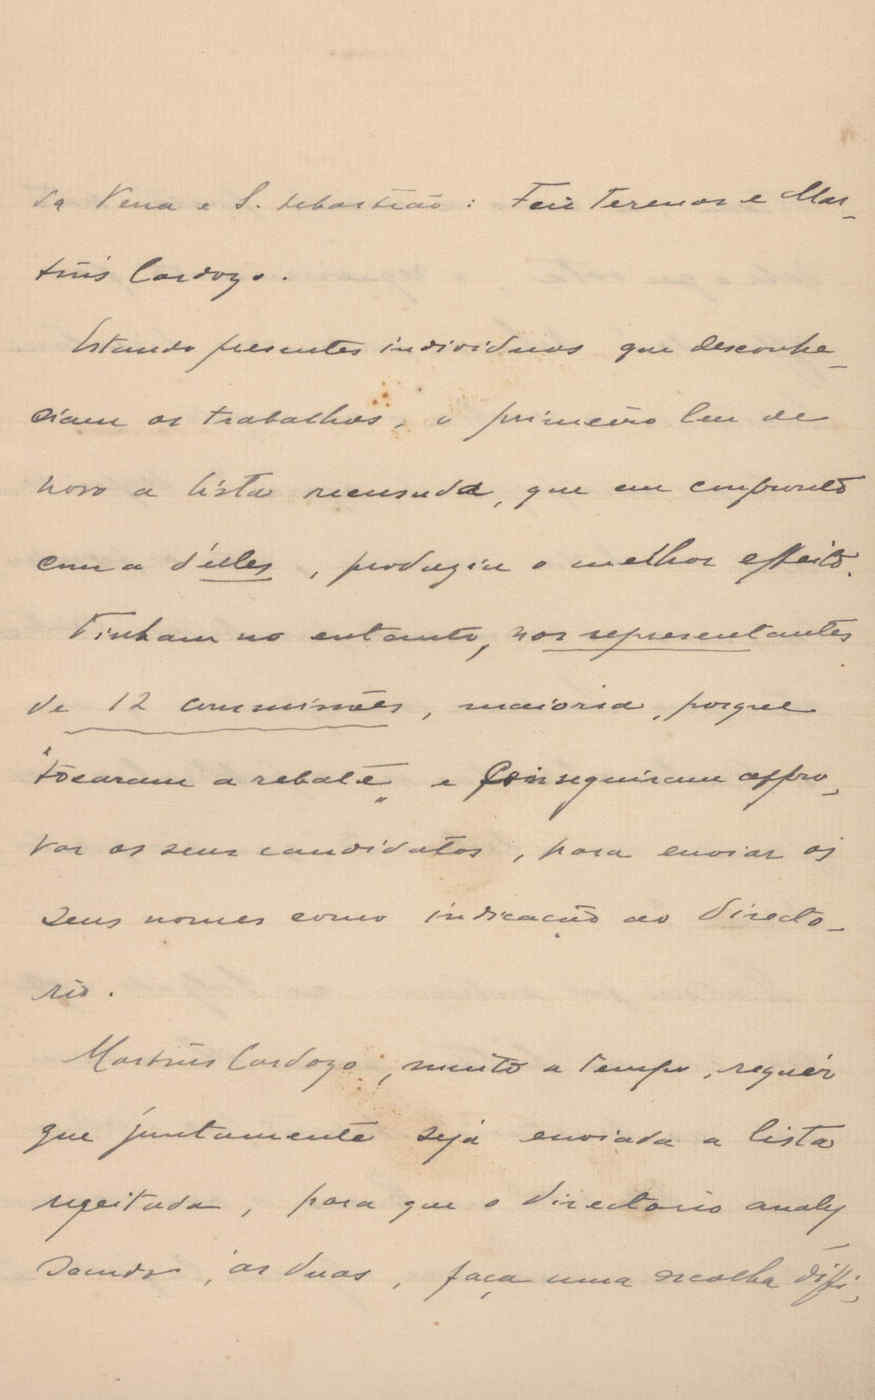 da Pena e S. Sebastião: Feio Terenas e Mar-
tins Cardozo.
Estando presentes individuos que desconhe-
ciam os trabalhos, o primeiro leu de
novo a lista recusada, que em confronto
com a d'elles, produziu o melhor effeito.
Tinham no entanto, nos representantes
de 12 commissões, maioria, porque
"tocaram a rebate" e conseguiram appro-
var os seus candidatos, para enviar os
seus nomes como indicação ao directo-
rio.
Martins Cardozo, muito a tempo, requér
que juntamente seja enviada a lista
regeitada, para que o directorio analy
sando, as duas, faça uma escolha diffi-